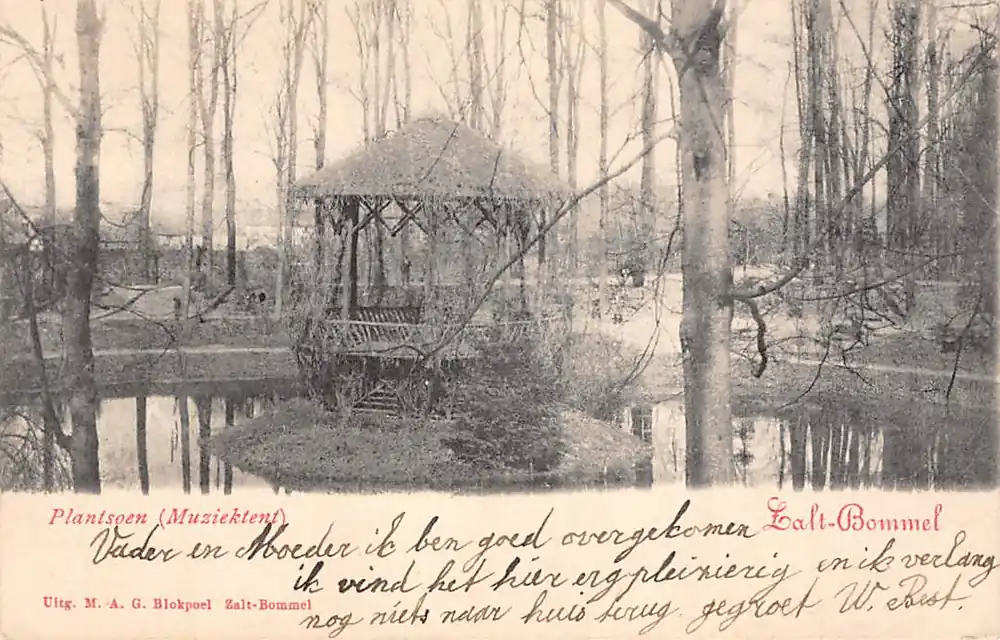 Plantsoen (Muziektent)
Zalt-Bommel
Vader en Moeder ik ben goed overgekomen
ik vind het hier erg pleizierig en ik verlang
nog niets naar huis terug. gegroet W. Best.
Uitg. M. A. G. Blokpoel Zalt-Bommel